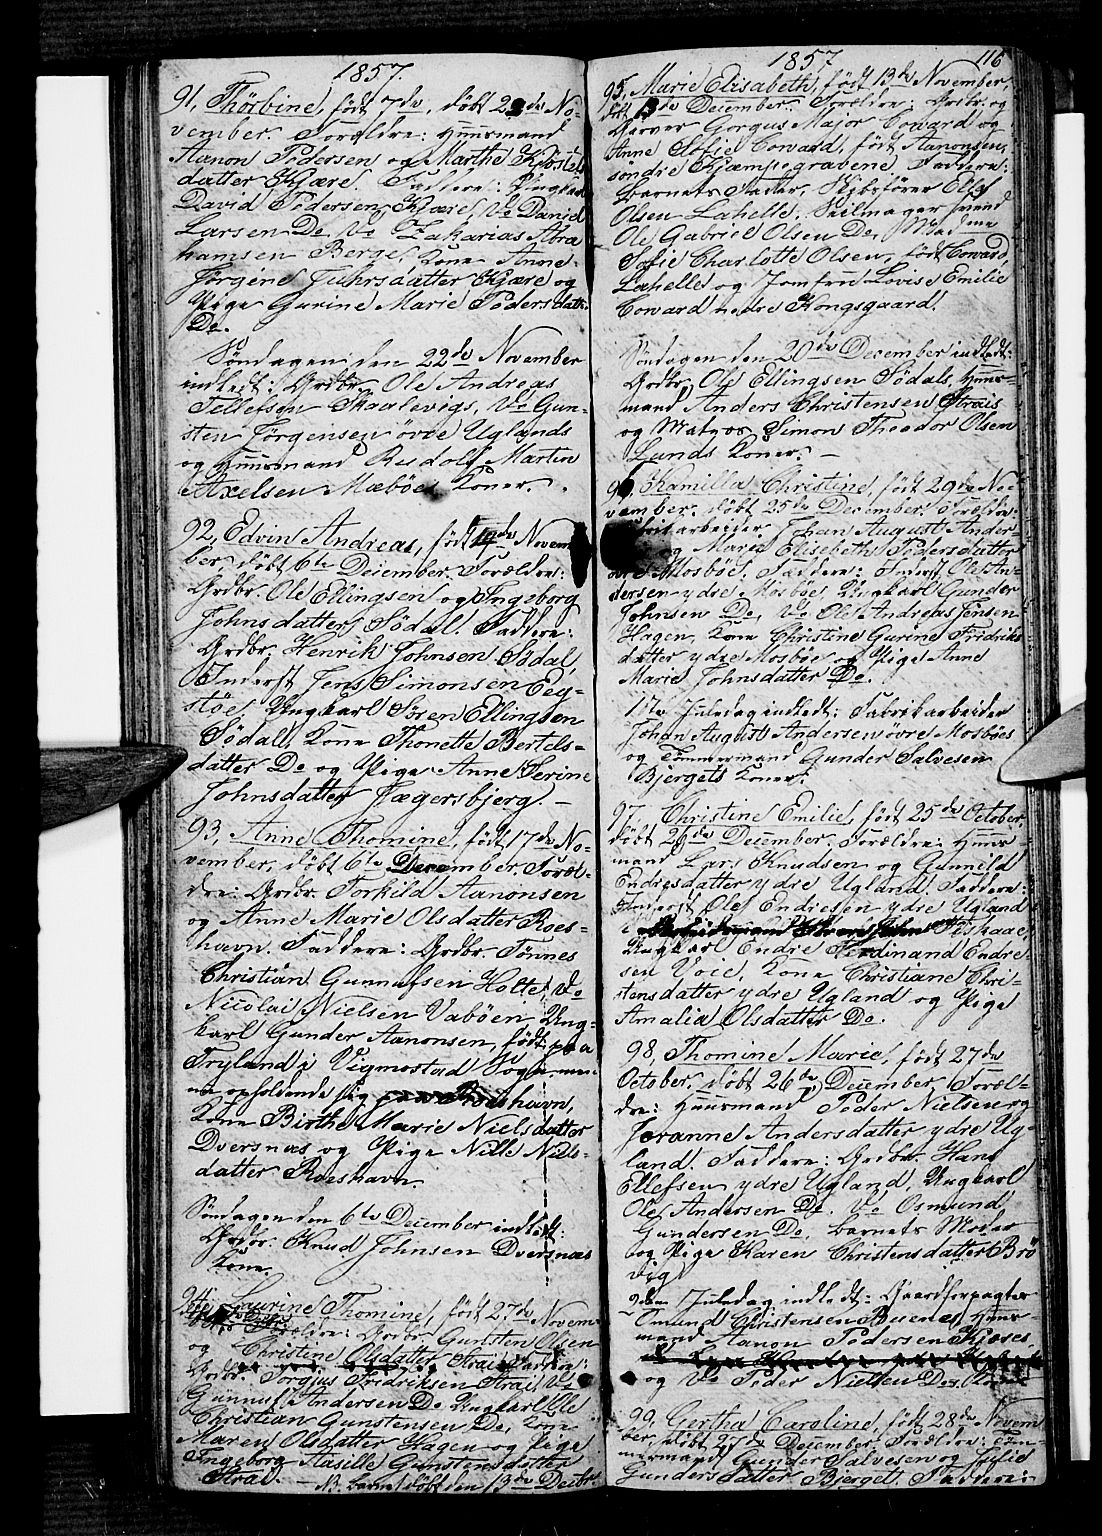 1857.
91, Thorbine, født 7de, døbt 22de No-
vember. Forældre: Huusmand
Aanon Pedersen og Marthe
datter Kjære. Faddere: Ungkarl
David Pedersen Kjære, Do Daniel
Larsen Do. Do Zakarias Abra
hamsen Berge, Kone Anne
Jørgine Juhrsdatter Kjære og
Pige Gurine Marie Pedersdatter
Do.
Søndagen den 22de November
indledt: Grdbr. Ole Andreas
Tellefsen Skralevigs, Do Gun-
sten Jørgensen øvre Uglands
og Huusmand Rudolf Martin
Axelsen Mæbøes Koner.
92, Edvin Andreas, født November
døbt 6te December. Forældre:
Grdbr. Ole Ellingsen og Ingeborg
Johnsdatter Södal. Faddere:
Grdbr. Henrik Johnsen Södal,
Inderst Jens Simonsen Eeg-
støe, Ungkarl Sören Ellingsen
Södal, Kone Thonette Bertels-
datter Do og Pige Anne Serine
Johnsdatter Jægersbjerg. -
93, Anne Thomine, født 17de No-
vember, døbt 6te December. Foræl-
dre: Grdbr. Torkild Aanonsen
og Anne Marie Olsdatter Roes-
havn. Faddere: Grdbr. Tönnes
Christian Gunnufsen Holte, Do
Nicolai Nielsen Vabøen, Ung-
karl Gunder Aanonsen, født paa
Tryland i Vigmostad Sogn men
nu opholdende sig Roeshavn,
Kone Birthe Marie Nielsdatter
Dversnæs og Pige Nille Niels-
datter Roeshavn.
Søndagen den 6te December indledt:
Grdbr. Knud Johnsen Dversnæs
Kone.
94. Laurine Thomine, født 27de Novem
Forældre: Grdbr Gunsten Olsen
og Christine Olsdatter Strai. Faddere:
Grdbr. Torgus Fredriksen Strai, Do
Gunnuf Andersen Do, Ungkarl Ole
Christian Gunstensen Do, Kone
Maren Olsdatter Hagen og Pige
Ingeborg Aasille Gunstensdatter
Strai. - NB. barnet døbt den 13de Decbr.
1857 116
95, Marie Elisabeth, født 13de November,
døbt 13de December. Forældre: Grdbr. og
Garver Gorgus Major Coward og
Anne Sofie Coward, født Aanonsen,
søndre Kjæmpegravene. Faddere:
Barnets Fader, Skibsfører Elef
Olsen Lahelle, Seilmagersvend
Ole Gabriel Olsen Do, Madme
Sofie Charlotte Olsen, født Coward,
Lahelle og Jomfru Lovise Emilie
Coward nedre Kongsgaard.
Søndagen den 20de December indledt:
Grdbr. Ole Ellingsen Södals, Huus-
mand Anders Christensen Strais
og Matros Simon Theodor Olsen
Lunds Koner. -
96, Kamilla Christine, født 29de No-
vember, døbt 25de December. Forældre:
Fabrikarbeider Johan August Ander-
sen og Marie Elisebeth Pedersdatter
øvre Mosbøe. Faddere: Inderst Ole An-
dersen ydre Mosbøe, Ungkarl Gunder
Johnsen Do, Do Ole Andreas Jensen
Hagen, Kone Christine Gurine Fredriks-
datter ydre Mosbøe og Pige Anne
Marie Johnsdatter Do.
1ste Juledag indledt: Fabrikarbeider
Johan August Andersen øvre Mosbøes
og Tømmermand Gunder Salvesen
Bjergets Koner.
97. Christine Emilie, født 25de October,
døbt 26de December. Forældre: Huus-
mand Lars Knudsen og Gunnild
Endresdatter ydre Ugland. Faddere:
Inderst Ole Endresen ydre Ugland
Ungkarl Endre Ferdinand Endre-
sen Voie, Kone Christiane Chri-
stensdatter ydre Ugland og Pige
Amalia Olsdatter Do.
98, Thomine Marie, født 27de
October, døbt 26de December. Foræl-
dre: Huusmand Peder Nielsen og
Joranne Andersdatter ydre Ug-
land. Faddere: Grdbr. Hans
Ellefsen ydre Ugland, Ungkarl
Ole Andersen Do. Do Osmund
Gundersen Do, Barnets Moder
og Pige Karen Christensdatter Brö
vig.
2den Juledag indledt: Gaardforpagter
Omund Christensen Buenes, Huus
mand Aanon Pedersen Kjæres
og Do Peder Nielsen Do,
99, Gertha Caroline, født 28de Novem
ber, døbt 27de December. Forældre: Töm-
mermand Gunder Salvesen og Sofie
Gundersdatter Bjerget. Faddere: